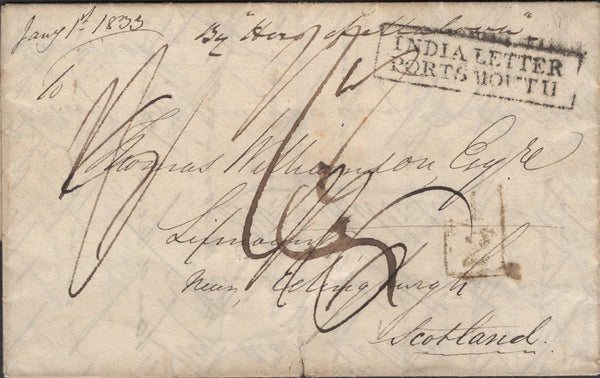 Jany 1st 1833
By "Hero of
INDIA LETTER
PORTSMOUTH
To
Thomas Williamson Esqre
Near Edingburgh
Scotland